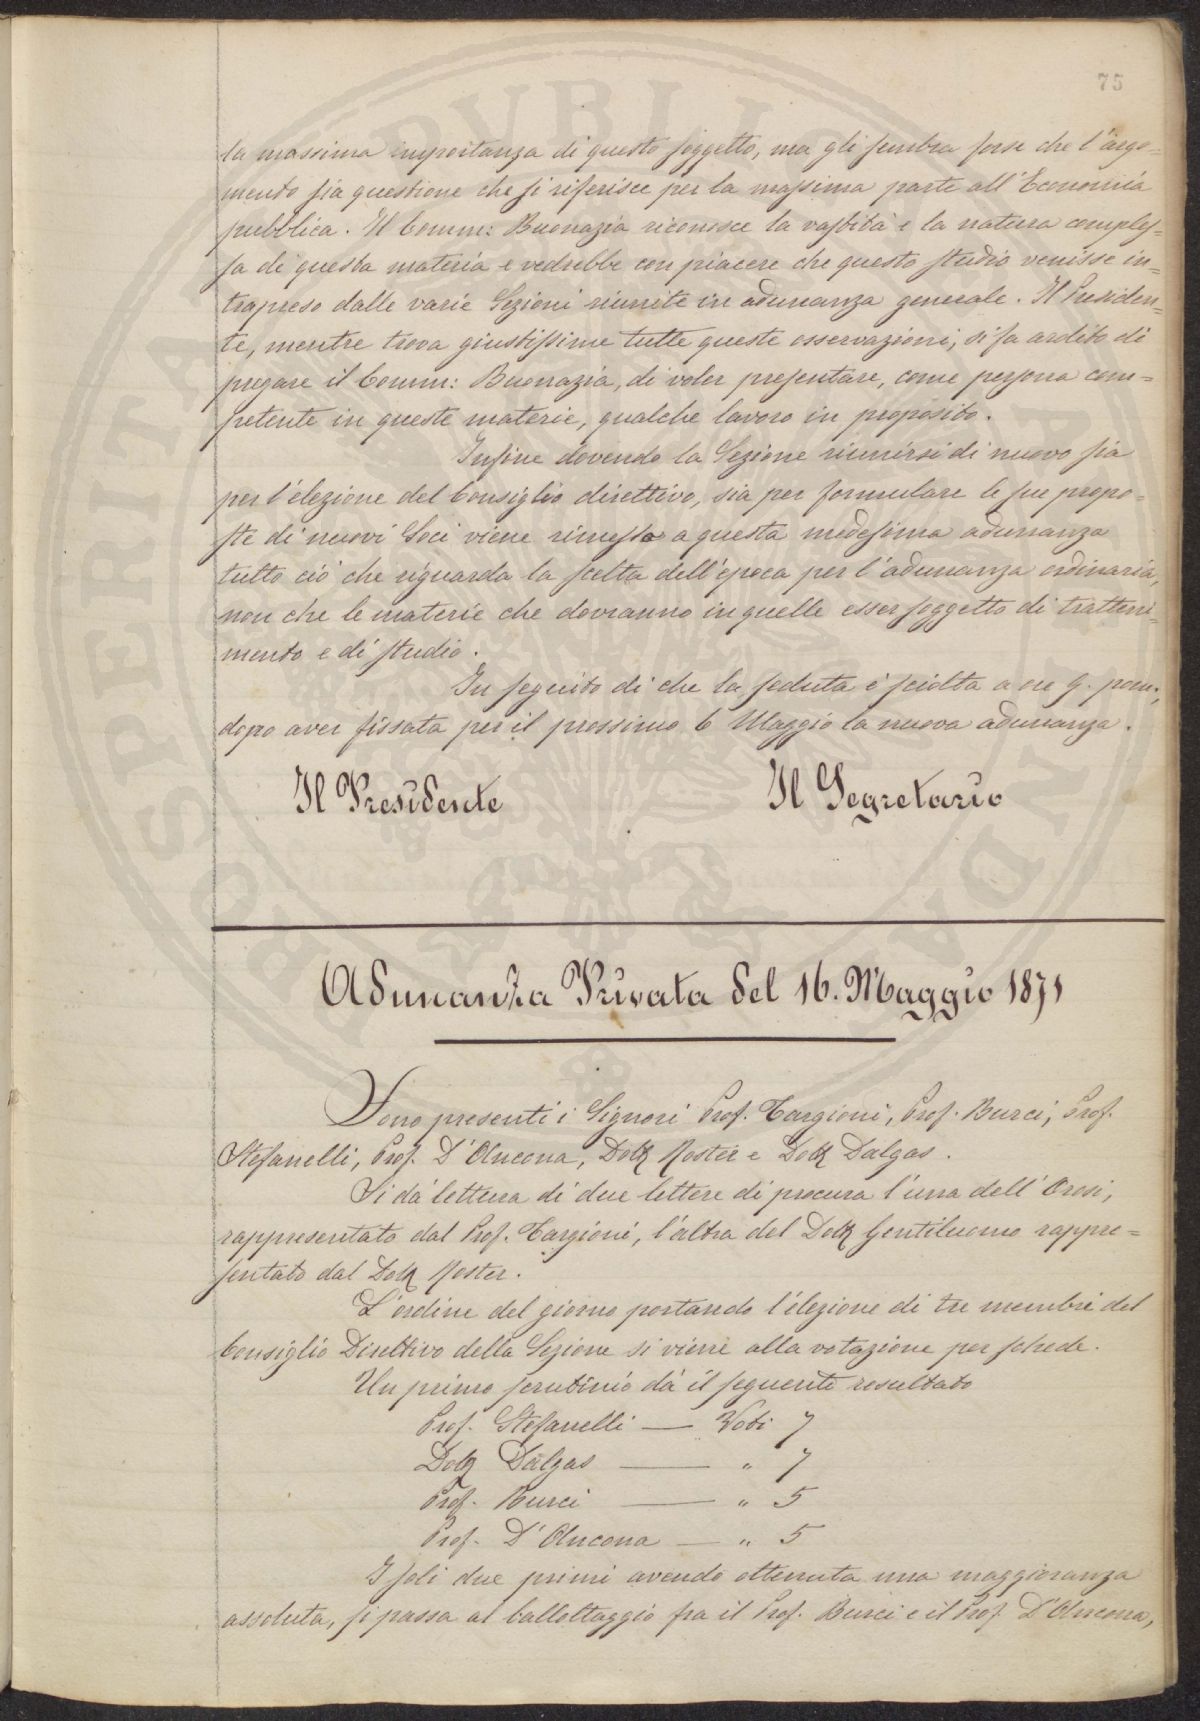 75
la massima importanza di questo soggetto, ma gli sembra forse che l'argo=
mento sia questione che si riferisce per la massima parte all'Economia
pubblica. Il Comm: Buonazia riconosce la vastità e la natura comples=
sa di questa materia e vedrebbe con piacere che questo studio venisse in=
trapreso dalle varie Sezioni riunite in adunanza generale. Il Presiden=
te, mentre trova giustissime tutte queste osservazioni, si fa ardito di
pregare il Comm: Buonazia, di voler presentare, come persona com=
petente in queste materie, qualche lavoro in proposito.
Infine dovendo la Sezione riunirsi di nuovo sia
per l'elezione del Consiglio direttivo, sia per formulare le sue propo=
ste di nuovi Soci viene rimesso a questa medesima adunanza
tutto ciò che riguarda la scelta dell'epoca per l'adunanza ordinaria,
non che le materie che dovranno in quelle esser soggetto di tratteni=
mento e di studio.
In seguito di che la seduta è sciolta a ore 9. pom:,
dopo aver fissata per il prossimo 6 Maggio la nuova adunanza.
Il Presidente
Il Segretario
Adunanza Privata del 16. Maggio 1871
Sono presenti i Signori Prof. Targioni, Prof. Burci, Prof.
Stefanelli, Prof. D'Ancona, Dott Roster e Dott Dalgas.
Si dà lettura di due lettere di procura l'una dell'Orosi,
rappresentato dal Prof. Targioni, l'altra del Dott Gentiluomo rappre=
sentato dal Dott Roster.
L'ordine del giorno portando l'elezione di tre membri del
Consiglio Direttivo della Sezione si viene alla votazione per schede.
Un primo scrutinio dà il seguente resultato
Prof. Stefanelli — Voti 7
Dott Dalgas — " 7
Prof. Burci — " 5
Prof. D'Ancona — " 5
I soli due primi avendo ottenuta una maggioranza
assoluta, si passa al ballottaggio fra il Prof. Burci e il Prof. D'Ancona,